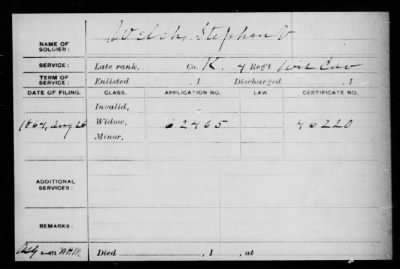 NAME OF SOLDIER: Welch, Stephen V
SERVICE: Late rank, Co. K, 4 Reg't Wis Cav
TERM OF SERVICE: Enlisted , 1 Discharged , 1
DATE OF FILING. CLASS. APPLICATION NO. LAW. CERTIFICATE NO.
Invalid,
1864, Aug 26 Widow, 62465 46220
Minor,
ADDITIONAL SERVICES:
REMARKS:
Died , 1 , at